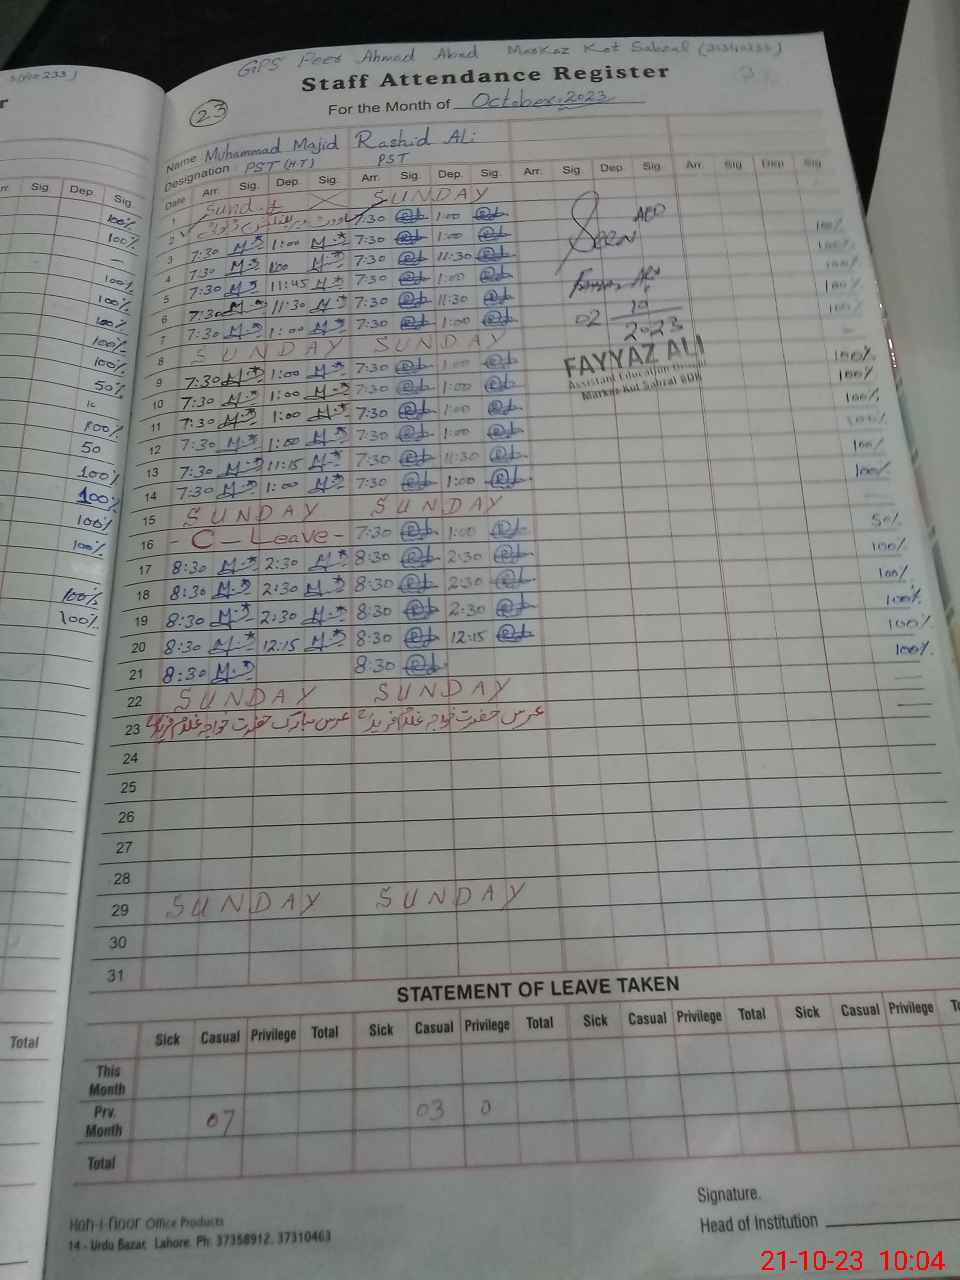 GPS Peer Ahmad Abad Markaz Kot Sabzal
Staff Attendance Register
23
For the Month of October 2023
Name Muhammad Majid Rashid Ali
Designation PST (H.T) PST
Date Arr. Sig. Dep. Sig. Arr. Sig. Dep. Sig. Arr. Sig. Dep. Sig. Arr. Sig. Dep. Sig.
1 Sunday SUNDAY
2 7:30 1:00
3 7:30 1:00 7:30 1:00 100%
4 7:30 1:00 7:30 11:30 100%
5 7:30 11:45 7:30 1:00 100%
6 7:30 11:30 7:30 11:30 100%
7 7:30 1:00 7:30 1:00 100%
8 SUNDAY SUNDAY
9 7:30 1:00 7:30 1:00 100%
10 7:30 1:00 7:30 1:00 100%
11 7:30 1:00 7:30 1:00 100%
12 7:30 1:00 7:30 1:00 100%
13 7:30 11:15 7:30 11:30 100%
14 7:30 1:00 7:30 1:00 100%
15 SUNDAY SUNDAY
16 - C - Leave - 7:30 1:00 50%
17 8:30 2:30 8:30 2:30 100%
18 8:30 2:30 8:30 2:30 100%
19 8:30 2:30 8:30 2:30 100%
20 8:30 12:15 8:30 12:15 100%
21 8:30 8:30 100%
22 SUNDAY SUNDAY
23 عرس مبارک حضرت خواجہ غلام فرید عرس حضرت خواجہ غلام فرید
24
25
26
27
28
29 SUNDAY SUNDAY
30
31
Seen AEO
02
10
2023
FAYYAZ ALI
Assistant Education Officer
Markaz Kot Sabzal RYK
STATEMENT OF LEAVE TAKEN
Sick Casual Privilege Total Sick Casual Privilege Total Sick Casual Privilege Total Sick Casual Privilege
This Month
Prv. Month 07 03 0
Total
Signature.
Head of Institution
Koh-i-noor Office Products
14 - Urdu Bazar, Lahore. Ph: 37358912, 37310463
Arr. Sig. Dep. Sig.
100%
100%
100%
100%
100%
100%
100%
50%
100%
50
100%
100%
100%
100%
100%
100%
Total
21-10-23 10:04